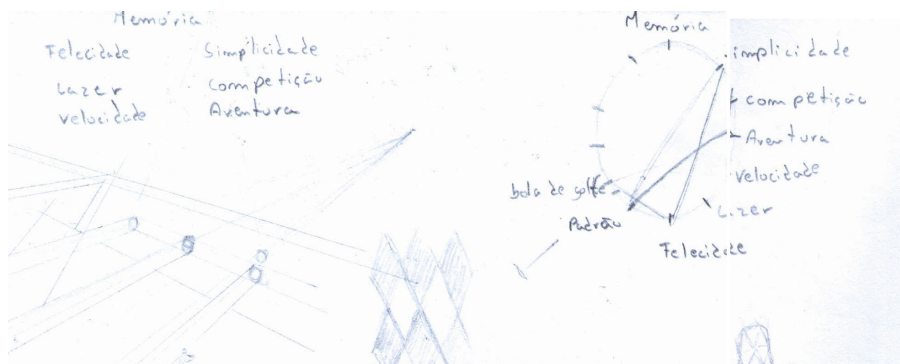 Memória
Felecidade Simplicidade
Lazer Competição
Velocidade Aventura
Memória
implicidade
competição
Aventura
velocidade
Lazer
Felecidade
Padrão
bola de golfe